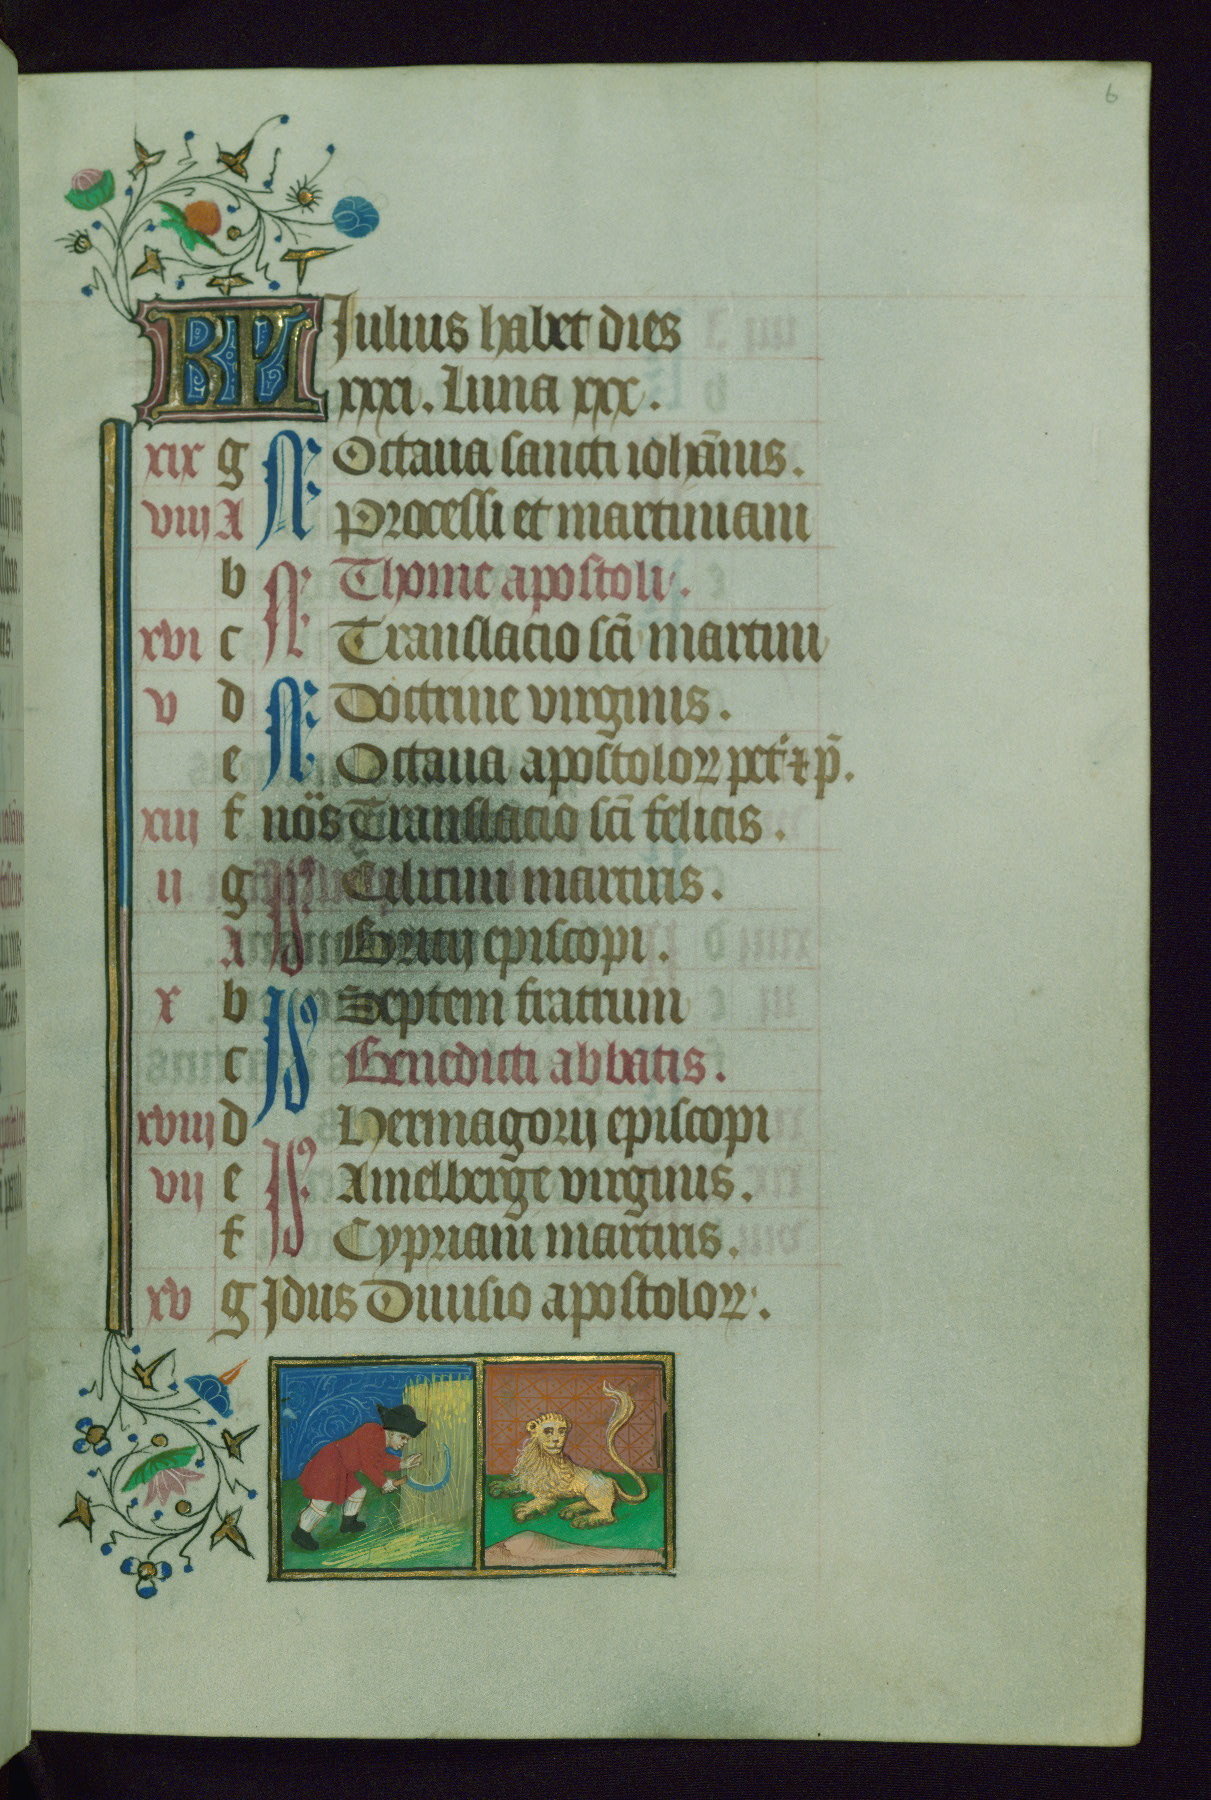 6
KL Iulius habet dies
xxxi. Luna xxx.
xix g N Octaua sancti ioha̅nis.
viii A Processi et martiniani
b N Thome apostoli.
xvi c Translacio sc̅i martini
v d N Doctrine virginis.
e Octaua apostoloꝝ pet' ⁊ p̅.
xiii f no̅s Translacio sc̅i felicis.
ii g Id Cilicini martiris.
A Brictij episcopi.
x b Id Septem fratrum
c Benedicti abbatis.
xviii d Hermagorij episcopi
vii e Id Amelberge virginis.
f Cypriani martiris.
xv g Idus Diuisio apostoloꝝ.